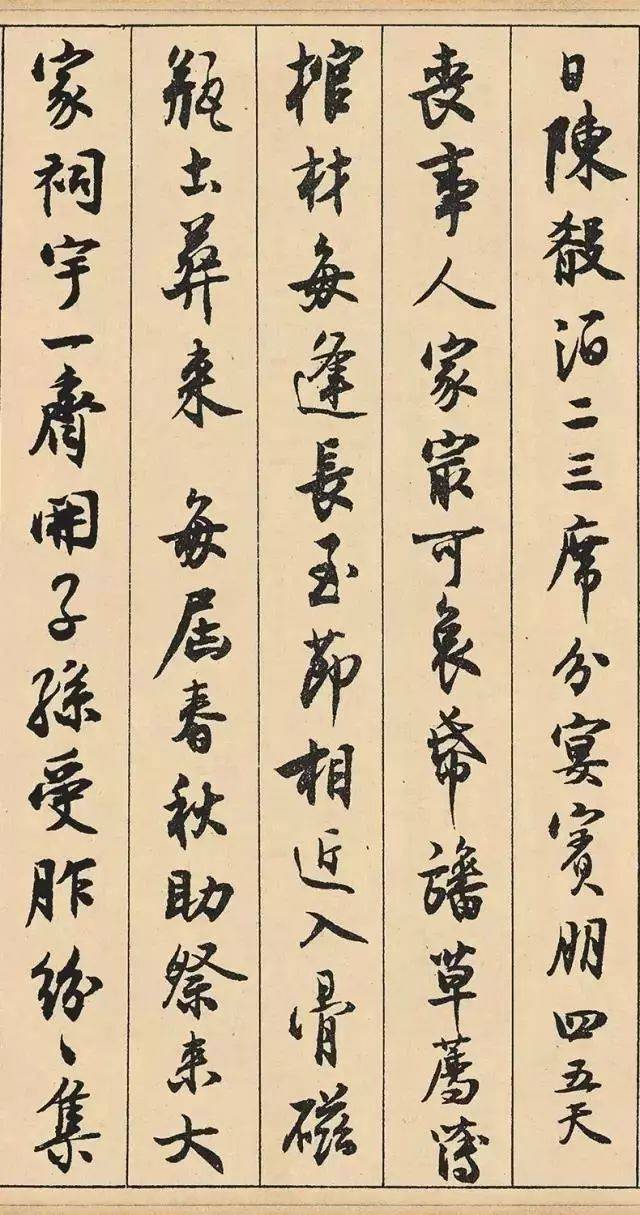 日陳殽酒二三席分宴賓朋四五天
喪事人家㝡可哀帋旛草薦薄
棺材每逢長至節相近入骨磁
瓶出葬來 每屆春秋助祭來大
家祠宇一齊開子孫受胙紛〻集